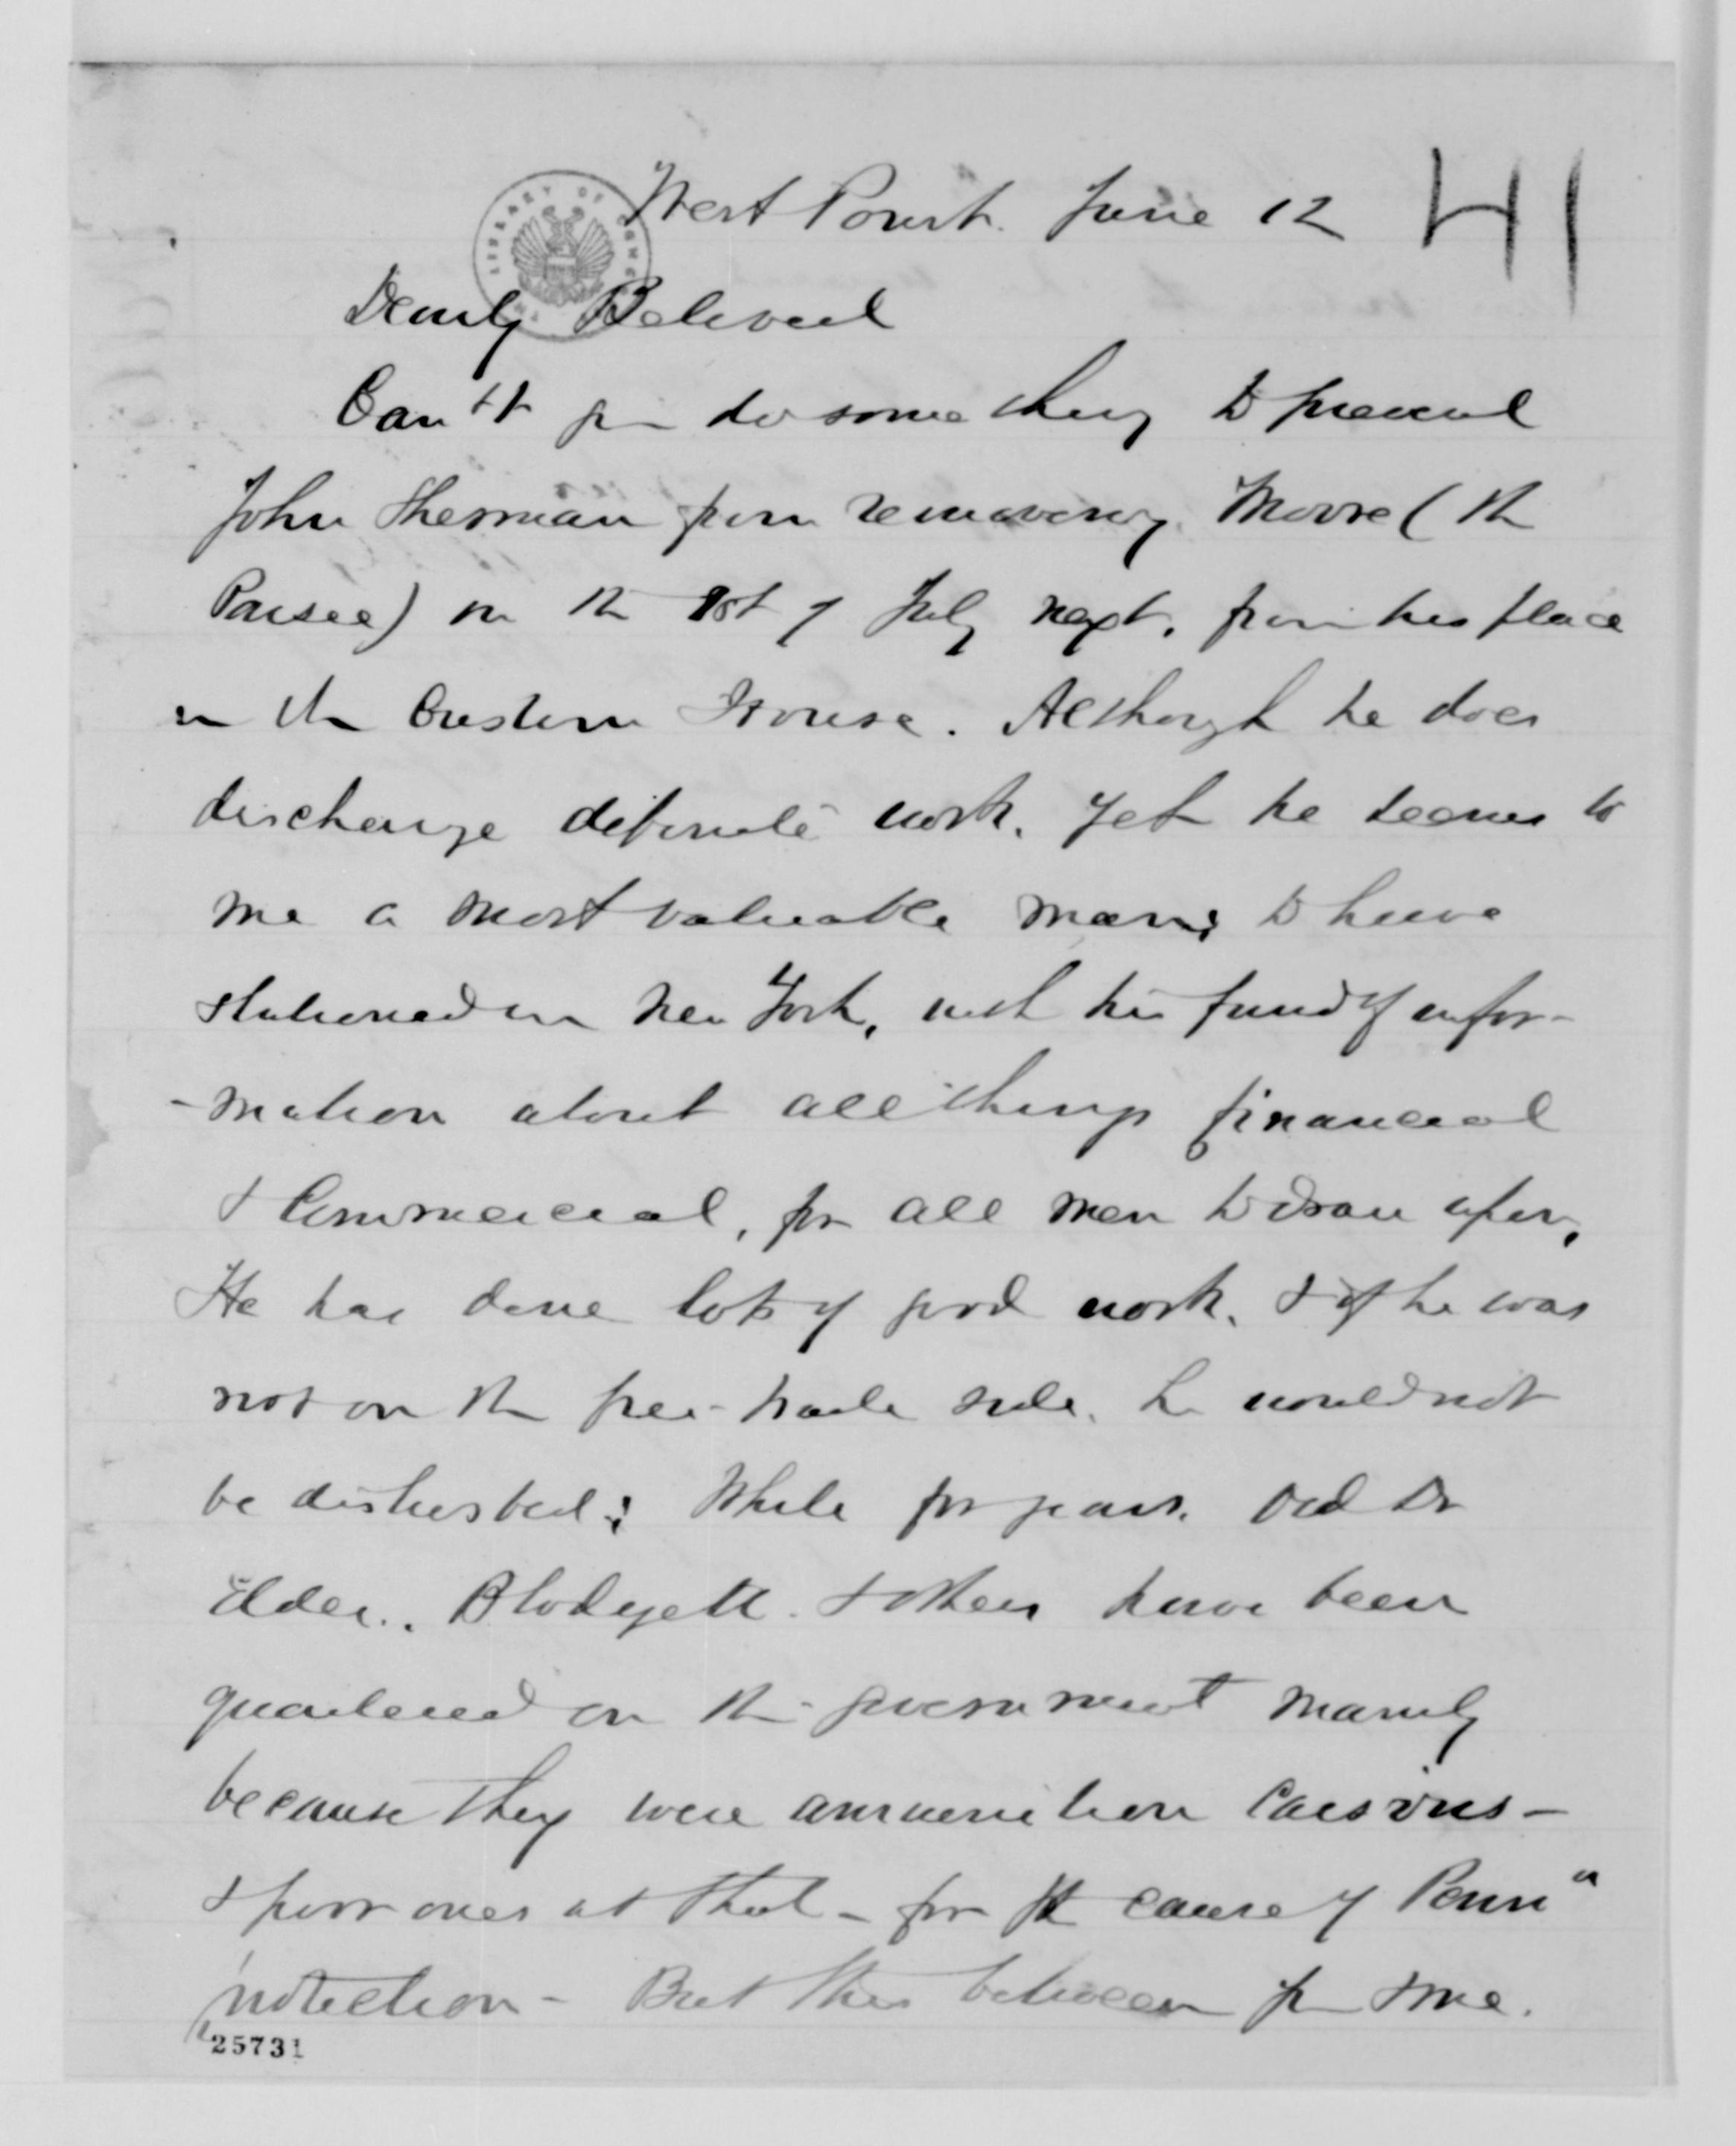 West Point. June 12
41
LIBRARY OF CONG
Dearly Beloved
Can't you do something to prevent
John Sherman from removing Moore (the
Parsee) on the 1st of July next, from his place
in the Custom House. Although he does
discharge definite work, yet he seems to
me a most valuable man; to have
stationed in New York, with his fund of infor-
-mation about all things financial
& Commercial, for all men to draw upon.
He has done lots of good work, & if he was
not on the free-trade side, he would not
be disturbed; While for years, Old Dr
Elder, Blodgett & others have been
quartered on the government mainly
because they were ammunition caissons -
& poor ones at that - for the cause of Penna
protection - But this between you & me.
25731